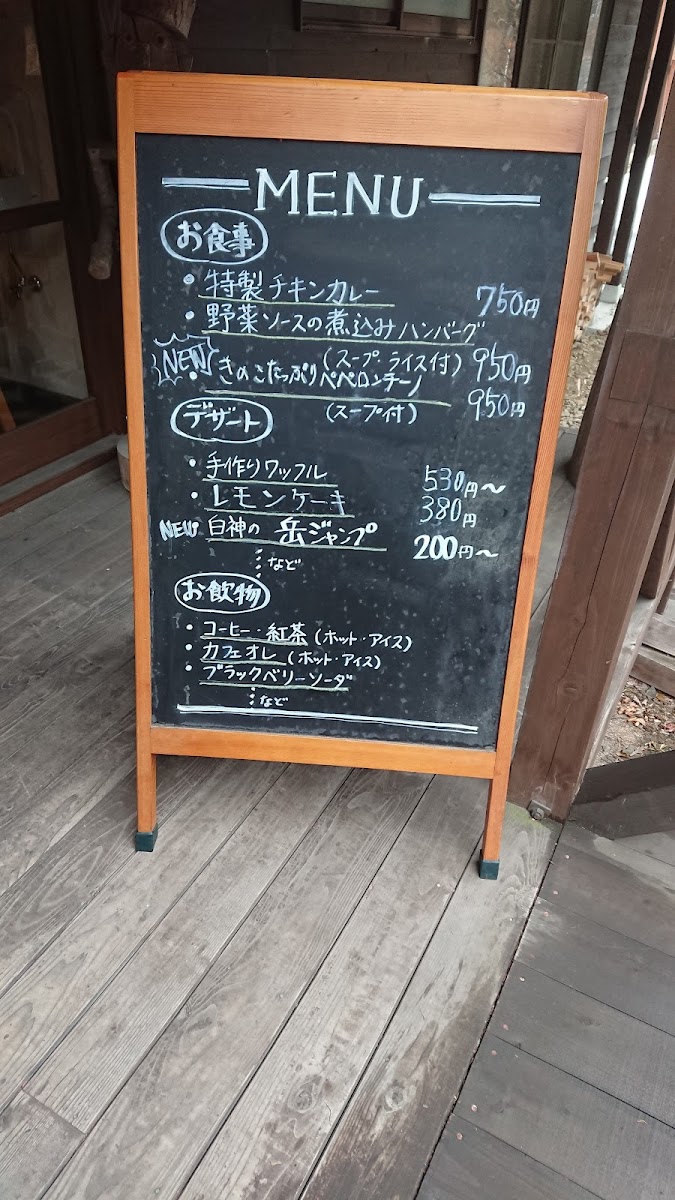 MENU
お食事
・特製チキンカレー 750円
・野菜ソースの煮込みハンバーグ
(スープ、ライス付) 950円
NEW・きのこたっぷりペペロンチーノ
(スープ付) 950円
デザート
・手作りワッフル 530円〜
・レモンケーキ 380円
NEW・白神の岳ジャンプ 200円〜
など
お飲物
・コーヒー・紅茶(ホット・アイス)
・カフェオレ(ホット・アイス)
・ブラックベリーソーダ
など